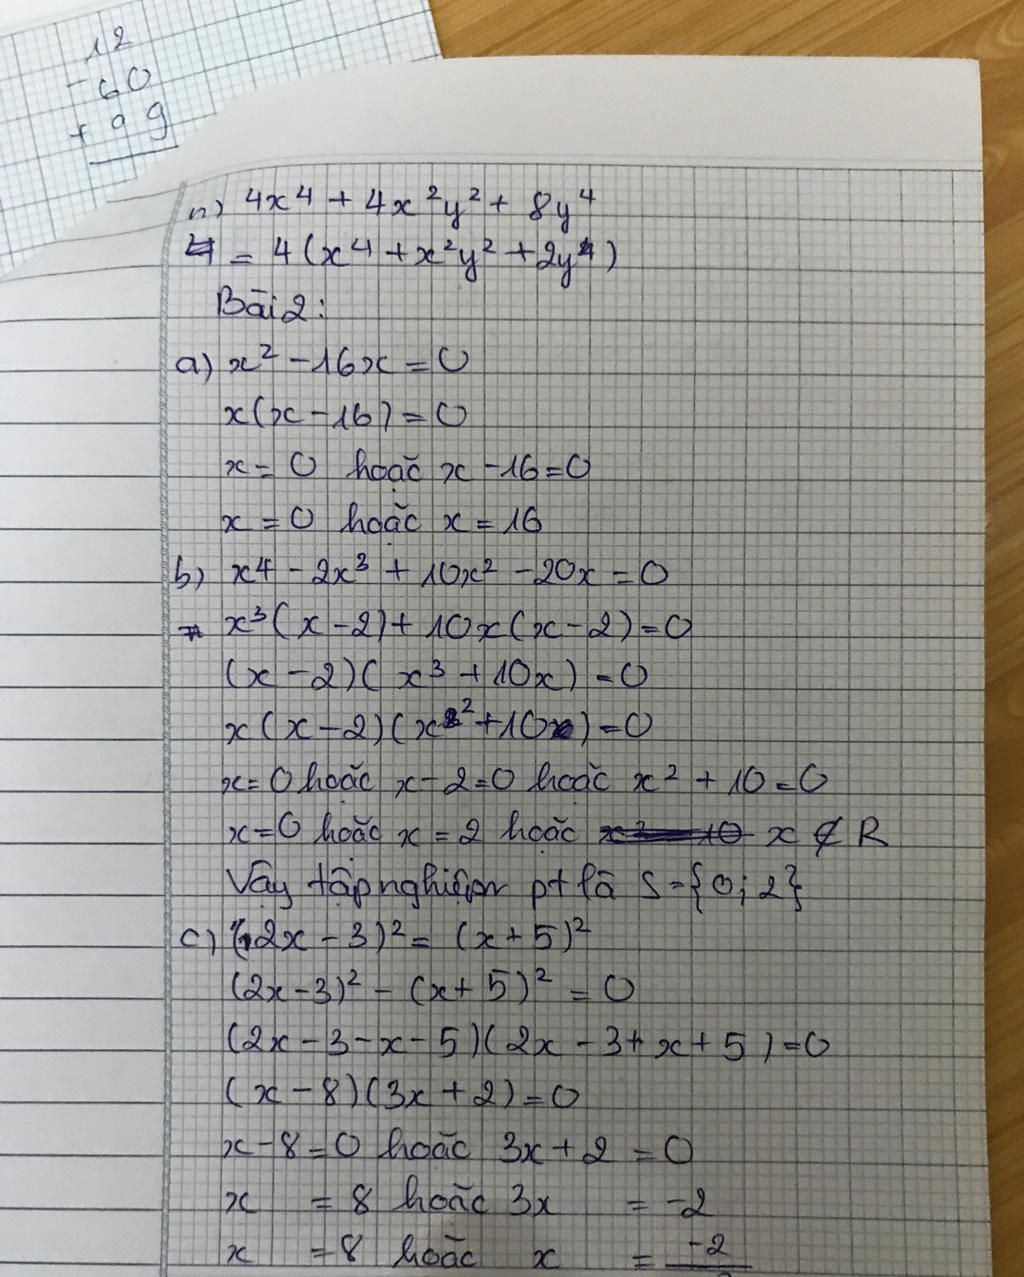 12
- 60
+ 99
n) 4x⁴ + 4x²y² + 8y⁴
= 4(x⁴ + x²y² + 2y⁴)
Bài 2:
a) x² - 16x = 0
x(x - 16) = 0
x = 0 hoặc x - 16 = 0
x = 0 hoặc x = 16
b) x⁴ - 2x³ + 10x² - 20x = 0
x³(x - 2) + 10x(x - 2) = 0
(x - 2)(x³ + 10x) = 0
x(x - 2)(x² + 10) = 0
x = 0 hoặc x - 2 = 0 hoặc x² + 10 = 0
x = 0 hoặc x = 2 hoặc x ∉ R
Vậy tập nghiệm pt là S = {0; 2}
c) (2x - 3)² = (x + 5)²
(2x - 3)² - (x + 5)² = 0
(2x - 3 - x - 5)(2x - 3 + x + 5) = 0
(x - 8)(3x + 2) = 0
x - 8 = 0 hoặc 3x + 2 = 0
x = 8 hoặc 3x = -2
x = 8 hoặc x = -2